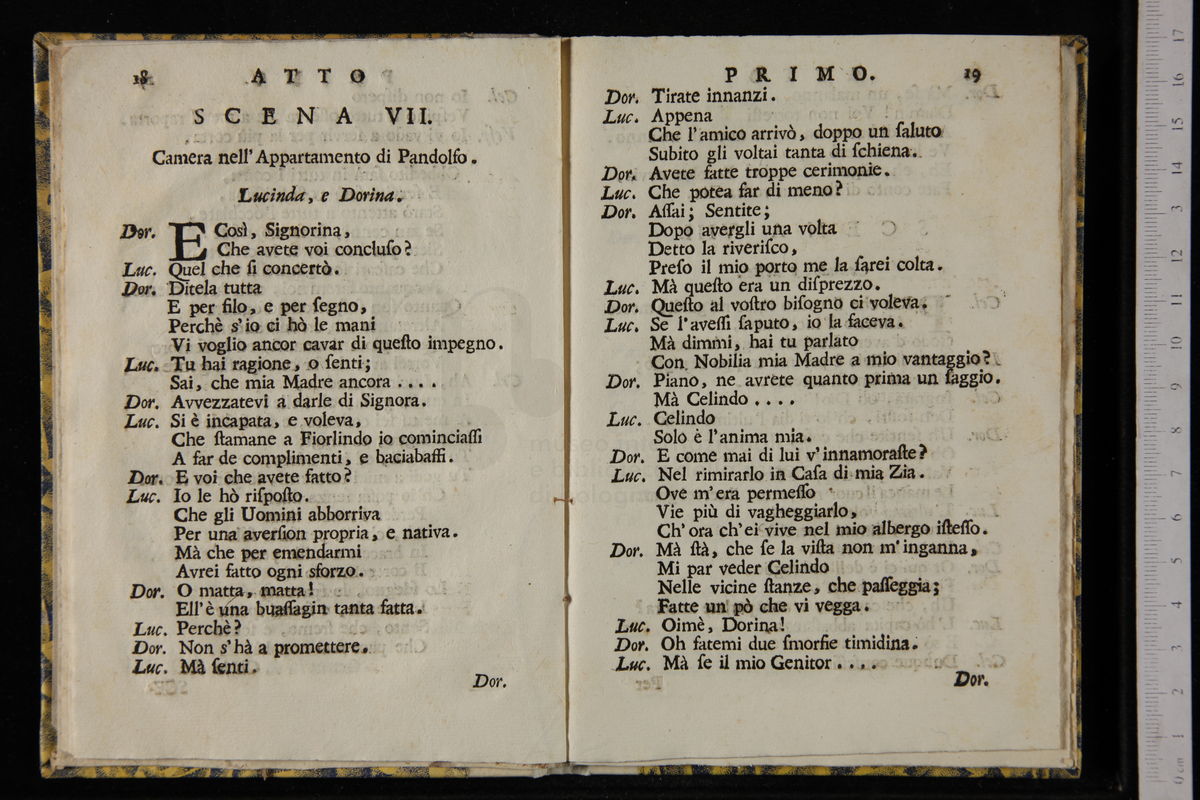 18 ATTO
SCENA VII.
Camera nell' Appartamento di Pandolfo.
Lucinda, e Dorina.
Dor. E Così, Signorina,
Che avete voi concluſo?
Luc. Quel che ſi concertò.
Dor. Ditela tutta
E per filo, e per ſegno,
Perchè s'io ci hò le mani
Vi voglio ancor cavar di queſto impegno.
Luc. Tu hai ragione, o ſenti;
Sai, che mia Madre ancora ....
Dor. Avvezzatevi a darle di Signora.
Luc. Si è incapata, e voleva,
Che ſtamane a Fiorlindo io cominciaſſi
A far de complimenti, e baciabaffi.
Dor. E voi che avete fatto?
Luc. Io le hò riſpoſto.
Che gli Uomini abborriva
Per una averſion propria, e nativa.
Mà che per emendarmi
Avrei fatto ogni sforzo.
Dor. O matta, matta!
Ell'è una buaſſagin tanta fatta.
Luc. Perchè?
Dor. Non s'hà a promettere.
Luc. Mà ſenti.
Dor.
PRIMO. 19
Dor. Tirate innanzi.
Luc. Appena
Che l'amico arrivò, doppo un ſaluto
Subito gli voltai tanta di ſchiena.
Dor. Avete fatte troppe cerimonie.
Luc. Che potea far di meno?
Dor. Aſſai; Sentite;
Dopo avergli una volta
Detto la riveriſco,
Preſo il mio porto me la ſarei colta.
Luc. Mà queſto era un diſprezzo.
Dor. Queſto al voſtro biſogno ci voleva.
Luc. Se l'aveſſi ſaputo, io la faceva.
Mà dimmi, hai tu parlato
Con Nobilia mia Madre a mio vantaggio?
Dor. Piano, ne avrete quanto prima un ſaggio.
Mà Celindo ....
Luc. Celindo
Solo è l'anima mia.
Dor. E come mai di lui v'innamoraſte?
Luc. Nel rimirarlo in Caſa di mia Zia.
Ove m'era permeſſo
Vie più di vagheggiarlo,
Ch'ora ch'ei vive nel mio albergo iſteſſo.
Dor. Mà ſtà, che ſe la viſta non m'inganna,
Mi par veder Celindo
Nelle vicine ſtanze, che paſſeggia;
Fatte un pò che vi vegga.
Luc. Oimè, Dorina!
Dor. Oh fatemi due ſmorfie timidina.
Luc. Mà ſe il mio Genitor ....
Dor.